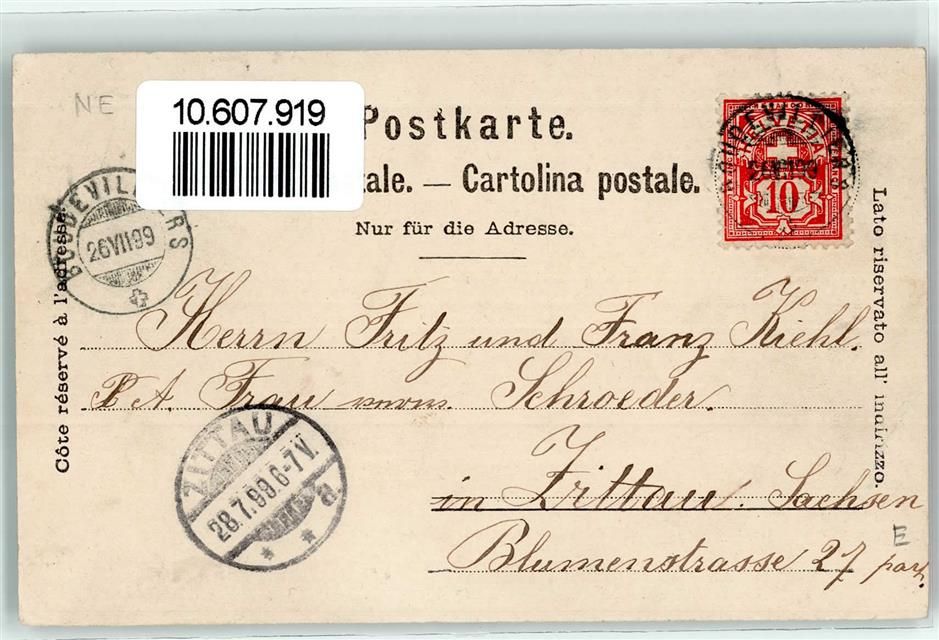 NE
10.607.919
Postkarte.
tale. — Cartolina postale.
Nur für die Adresse.
Côte réservé à l'adresse.
Lato riservato all' indirizzo.
BOUDEVILLIERS
26 VII 99
10
Herrn Fritz und Franz Kiehl.
P. A. Frau Schroeder.
ZITTAU
28.7.99.6-7V.
in Zittau. Sachsen
E
Blumenstrasse 27 part.